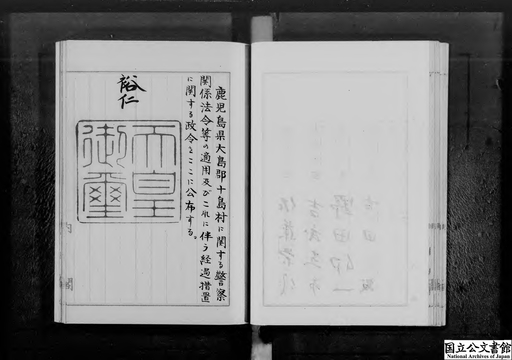 鹿児島県大島郡十島村に関する警察
関係法令等の適用及びこれに伴う経過措置
に関する政令をここに公布する。
裕仁
天皇
御璽
内
閣
国立公文書館
National Archives of Japan